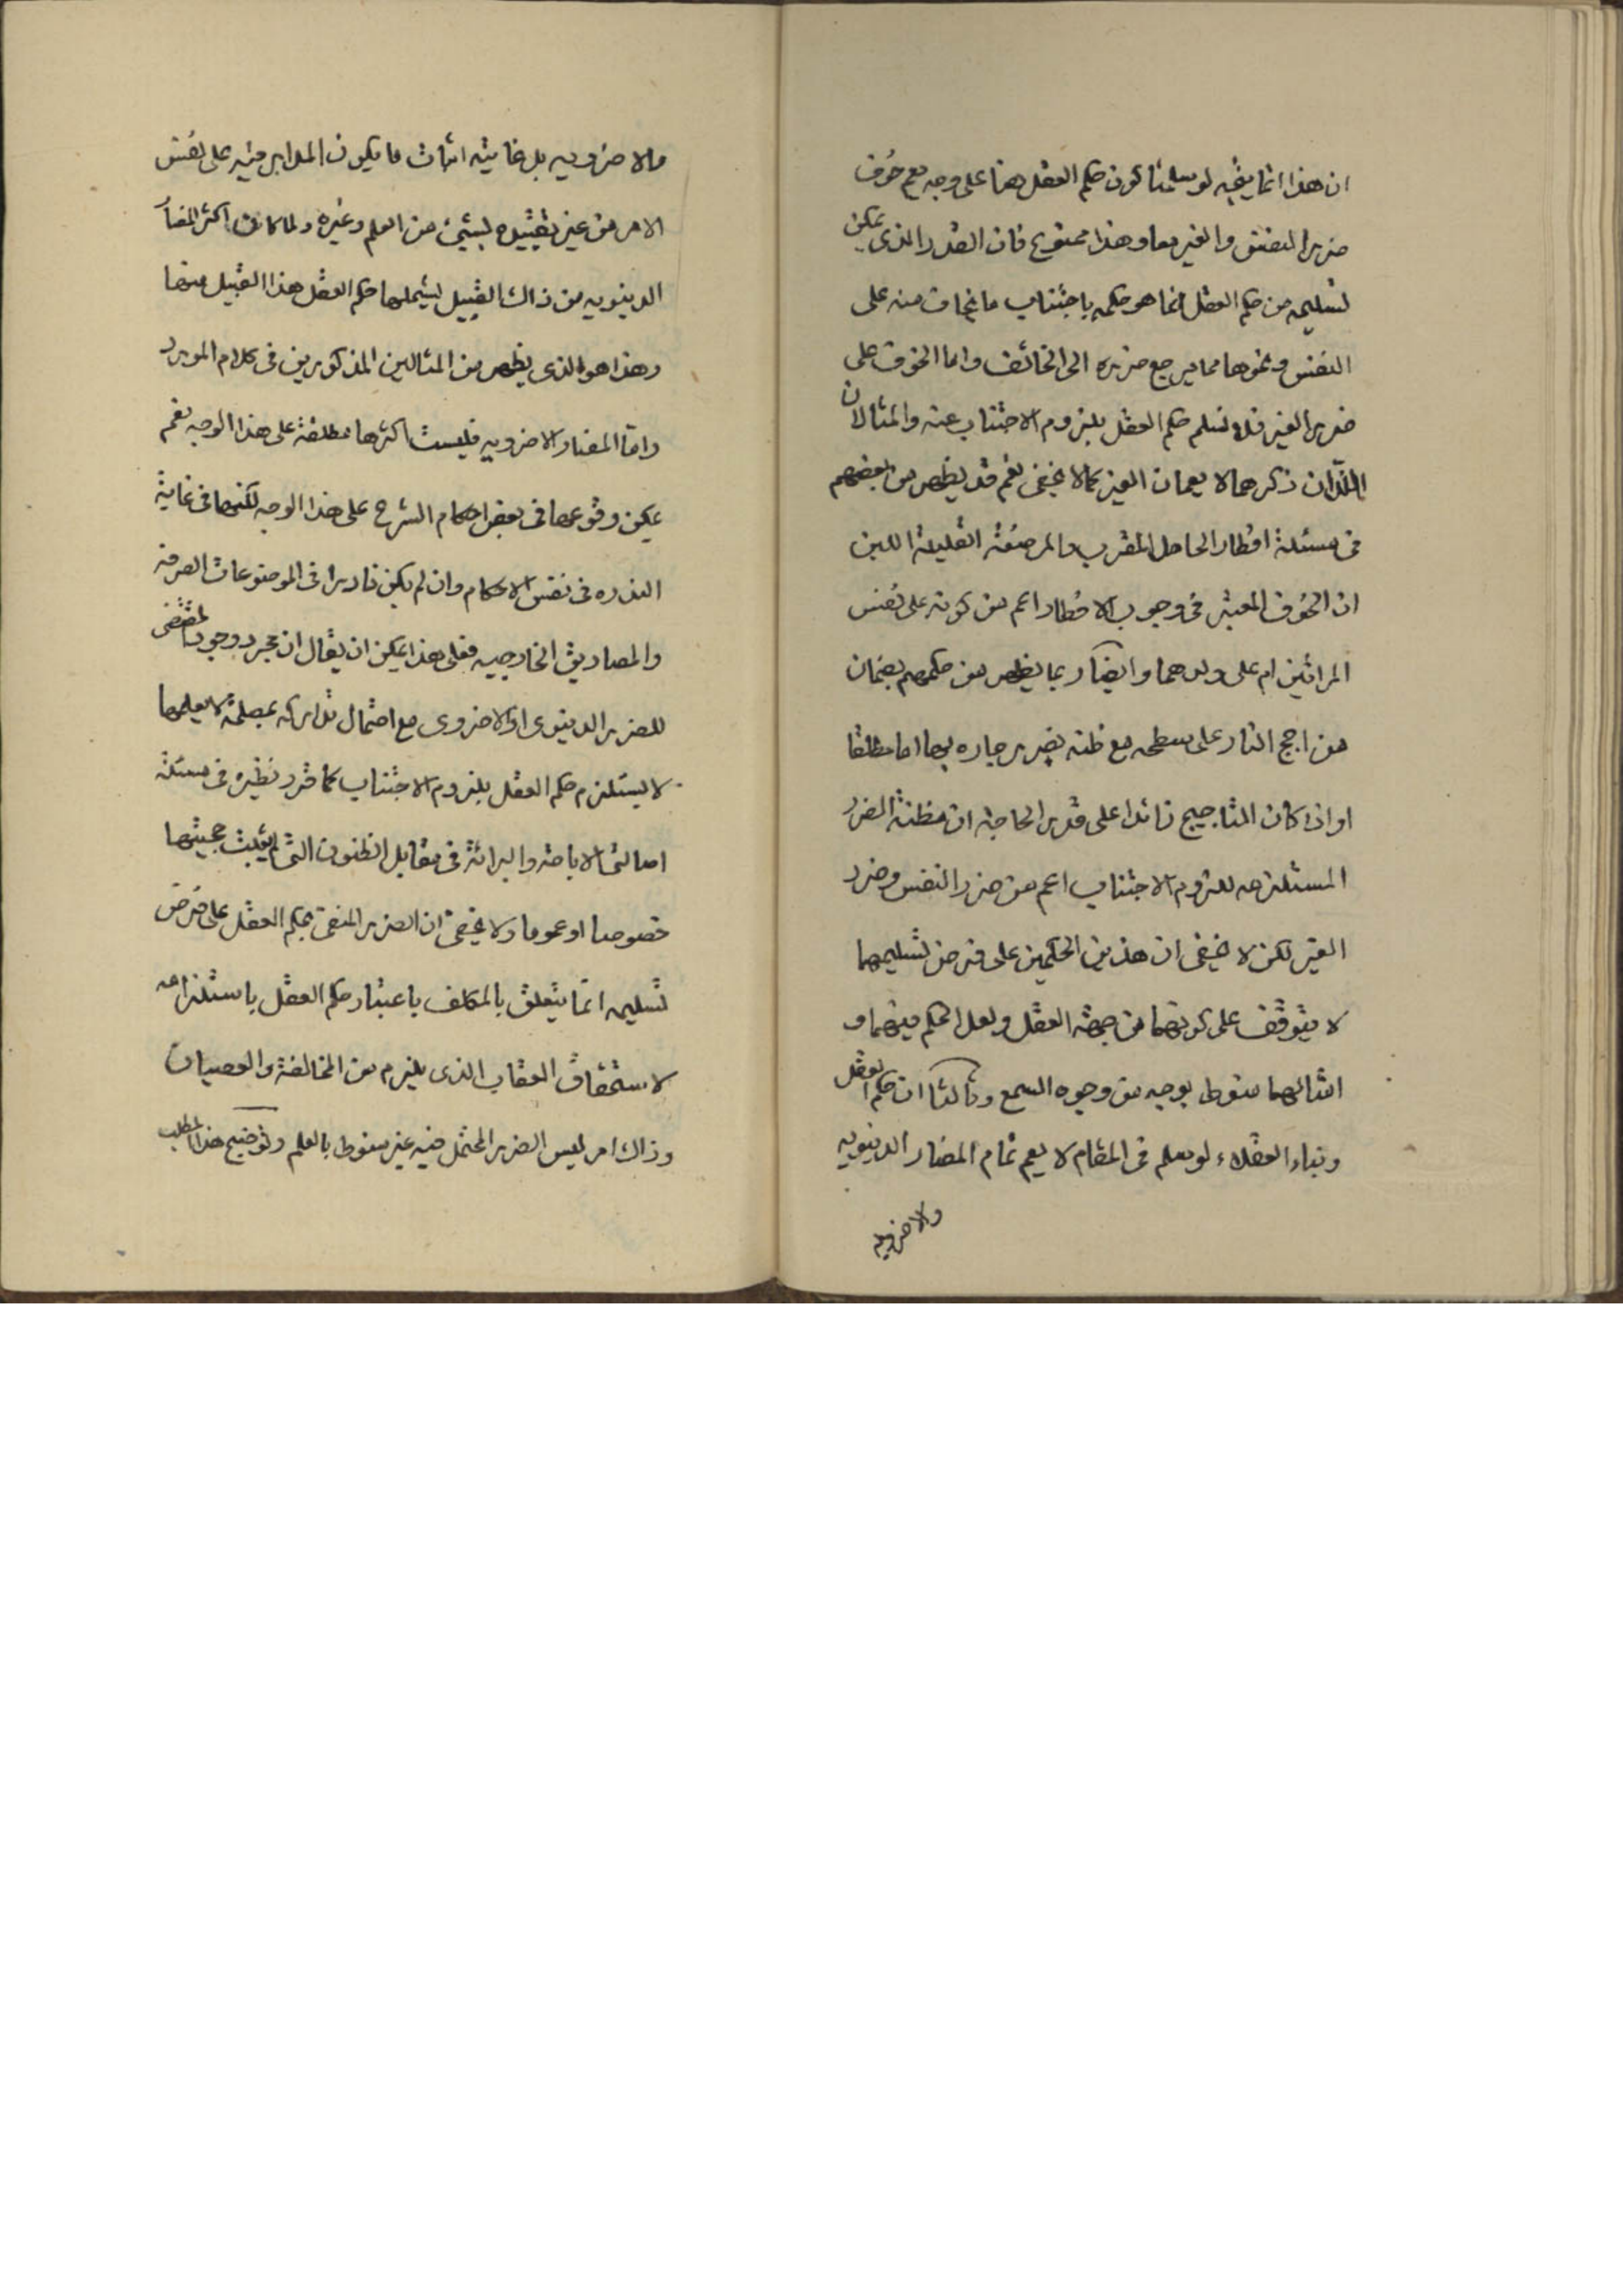 ان هذا انما يتجه لو سلمنا كون حكم العقل هنا على وجه يعم خوف
ضرر النفس والغير معا وهذا ممنوع فان القدر الذى يمكن
تسليمه من حكم العقل انما هو حكمه باجتناب ما يخاف منه على
النفس ونحوها مما يرجع ضرره الى الخائف واما الخوف على
ضرر الغير فلا نسلم حكم العقل بلزوم الاجتناب عنه والمثالان
اللذان ذكرهما لا يعمان الغير كما لا يخفى نعم قد يظهر من بعضهم
فى مسئلة افطار الحامل المقرب والمرضعة القليلة اللبن
ان الخوف المعتبر فى وجوب الافطار اعم من كونه على نفس
المرائتين ام على ولدهما وايضا ربما يظهر من حكمهم بضمان
من اجج النار على سطحه مع ظنه بضرر جاره بها اما مطلقا
او اذا كان التاجيج زائدا على قدر الحاجة ان مظنة الضرر
المستلزمه للزوم الاجتناب اعم من ضرر النفس وضرر
الغير لكن لا يخفى ان هذين الحكمين على فرض تسليمهما
لا يتوقف على كونهما من جهة العقل ولعل الحكم فيهما و
امثالهما منوط بوجه من وجوه السمع وثالثا ان حكم العقل
وبناء العقلاء لو سلم فى المقام لا يعم تمام المضار الدينويه
والاخرويه
والاخرويه بل غايته اثبات ما يكون المدار فيه على نفس
الامر من غير تقييده بشيئ من العلم وغيره ولما كانت اكثر المضار
الدينويه من ذاك القبيل ليشملها حكم العقل هذا القبيل منها
وهذا هو الذى يظهر من المثالين المذكورين فى كلام المورد
واما المضار الاخرويه فليست اكثرها مطلقة على هذا الوجه نعم
يمكن وقوعها فى بعض احكام الشرع على هذا الوجه لكنها فى غاية
الندره فى نفس الاحكام وان لم يكن نادرا فى الموضوعات الصرفه
والمصاديق الخارجيه فعلى هذا يمكن ان يقال ان مجرد وجود المقتضى
للضرر الدينوى او الاخروى مع احتمال تداركه بمصلحة لا يعلمها
لا يستلزم حكم العقل بلزوم الاجتناب كما قرر نظيره فى مسئلة
اصالتى الاباحة والبرائة فى مقابل الظنون التى لم يثبت حجيتها
خصوصا او عموما ولا يخفى ان الضرر المنفى بحكم العقل على فرض
تسليمه انما يتعلق بالمكلف باعتبار حكم العقل باستلزامه
لاستحقاق العقاب الذى يلزم من المخالفة والعصيان
وذاك امر ليس الضرر المحتمل فيه غير منوط بالعلم وتوضيح هذا المطلب